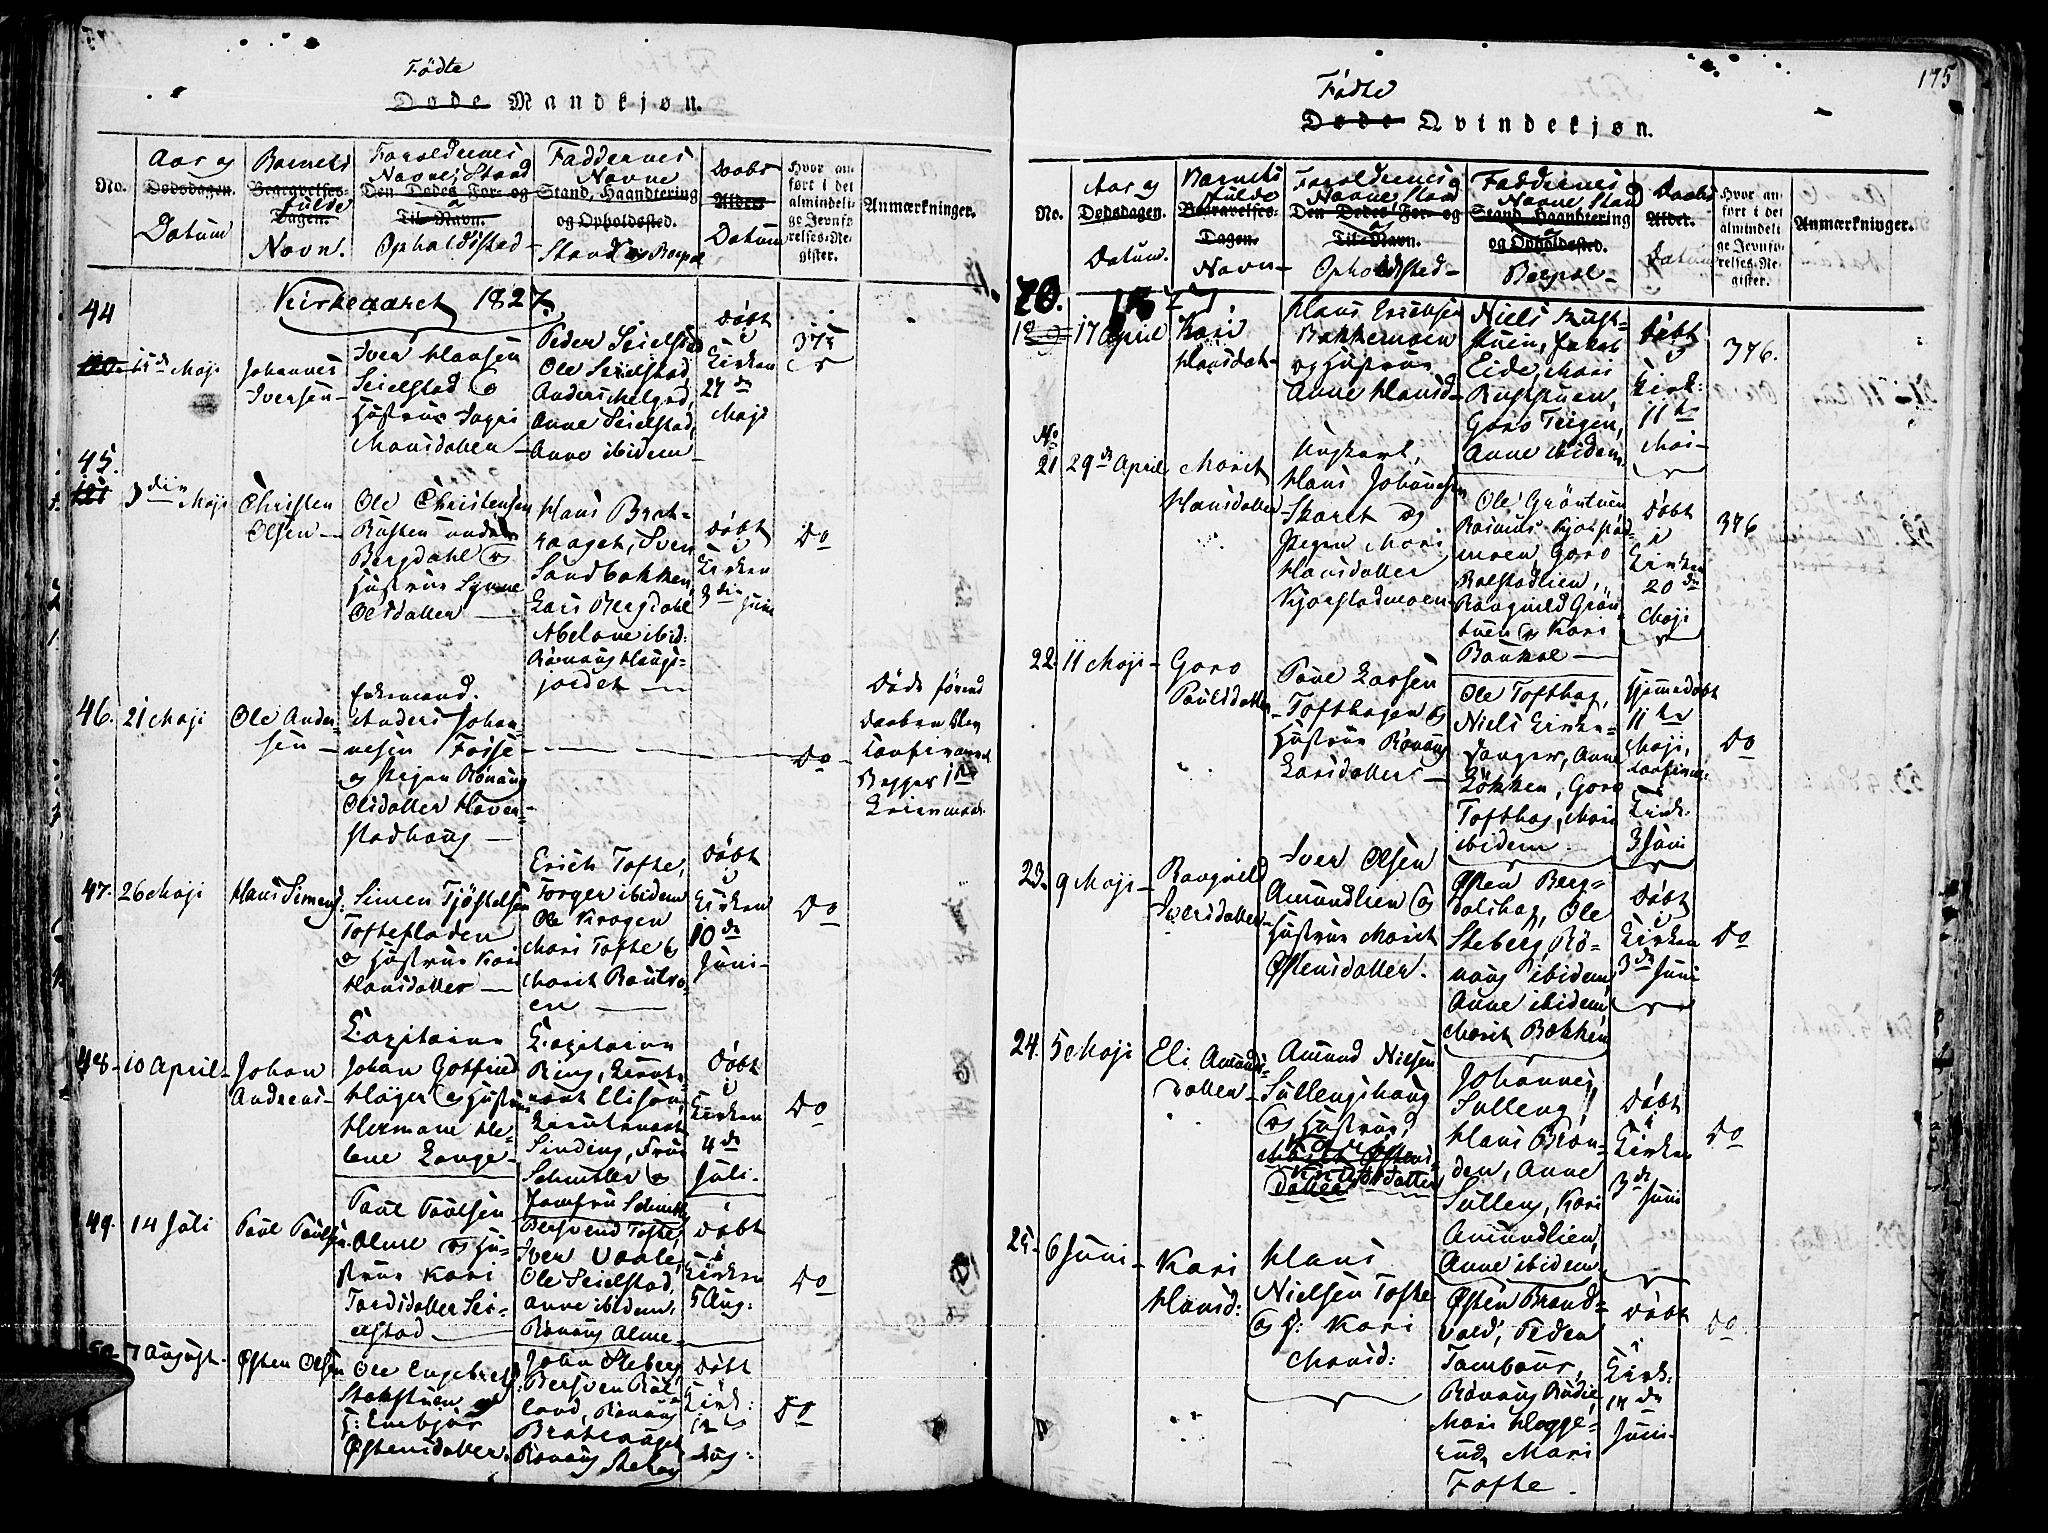 Fødte
Døde Mandkjøn.
No.
Aar og
Dødsdagen.
Datum
Barnets
Begravelses-
fulde
Dagen.
Navn.
Forældrenes
Navne, Stand
Den Dødes For- og
Til-Navn.
Opholdsted
Faddernes
Navne
Stand, Haandtering
og Opholdssted.
Daabs
Alder
Datum
Hvor an-
ført i det
almindeli-
ge Jevnfø-
relses-Re-
gister.
Anmærkninger.
Kirkeaaret 1827.
44
15de Maji
Johannes
Iversen
Iver Hansen
Seielstad og
Hustrue Ingri
Hansdatter
Peder Seielstad
Ole Seielstad
Anders Melgad,
Anne Seielstad,
Anne ibidem
Døbt
i
Kirken
27de
Maji
375
45.
121
3die Maji
Christen
Olsen
Ole Christensen
Rusten under
Bergdahl og
Hustrue Synne
Olsdatter
Hans Brat-
haaget, Sven
Sandbakken,
Lars Bergdahl
Abelone ibid:
Rønnaug Haugs-
jordet
Døbt
i
Kirken
3die Juni
Do
46.
21 Maji
Ole Ander-
sen
Enkemand
Anders Johan-
nesen Fosse
og Pigen Rønaug
Olsdatter Haver-
stadhaug
Do
Døde førend
Daaben blev
confirmeret
Begges 1ste
Leiermaal
47.
26 Maji
Hans Simens:
Simen Tjøstelsen
Toftefladen
og Hustrue Kari
Hansdatter
Erich Tofte,
Torger ibidem
Ole Kragen
Mari Tofte og
Marit Bautro-
en
Døbt
i
Kirken
10de
Juni
Do
48
10 April
Johan
Andreas
Capitaine
Johan Gotfried
Høyer og Hustrue
Hermane He-
lene Lange
Capitaine
Ring, Lieut-
nant Ellison,
Lieutenant
Sinding, Frue
Schmitler og
Jomfru Schmitler
Døbt
i
Kirken
4de
Juli
Do
49.
14 Juli
Poul Poulsen
Poul Poulsen
Alme og Hu-
strue Kari
Tordsdatter Sei-
elstad
Bersvend Tofte,
Iver Vaale,
Ole Seielstad,
Anne ibidem.
Rønaug Alme
Døbt
i
Kirken
5 Aug:
Do
50
7 August
Østen Olsen
Ole Engebrets:
Stokstuen og
H: Embjør
Østensdatter.
John Steberg
Bersven Røl-
land, Rønaug
Brathaaget,
Rønaug Steberg
Døbt
i
Kirk:
12te
Aug:
Do
175
Fødte
Døde Qvindekjøn.
No.
Aar og
Dødsdagen.
Datum.
Barnets
fulde
Begravelses-
Dagen.
Navn
Forældrenes
Navne, Stand
Den Dødes For- og
Til-Navn.
Opholdsted
Faddernes
Navne, Stand
Stand, Haandtering
og Opholdssted.
Daabs
Alder.
Datum
Hvor an-
ført i det
almindeli-
ge Jevnfø-
relses-Re-
gister.
Anmærkninger.
20.
17 April
Kari
Hansdat-
Hans Erichsen
Bakkemoen
og Hustrue
Anne Hansd
Niels Rust-
stuen, Jakob
Eide, Mari
Ruststuen,
Goro Teigen,
Anne ibidem
Døbt
i
Kirk:
11te
Mai
376.
No
21
29de April
Marit
Hansdatter
Ungkarl,
Hans Johannesen
Skaret og
Pigen Mari
Hansdatter
Kjorstadmoen
Ole Grøntuen
Rasmus Kjorstad-
moen, Goro
Rolstadlien,
Rangnild Grøn-
tuen og Kari
Baukol
Døbt
i
Kirken
20de
Maji
376
22.
11 Maji
Goro
Poulsdatter
Poul Larsen
Tofthagen og
Hustrue Rønaug
Larsdatter
Ole Tofthag,
Niels Kirke-
sanger, Anne
Løkken, Goro
Tofthag, Mari
ibidem
Hjemmedøbt
11te
Maji,
confirm:
Kirk:
3 Juni
Do
23.
9 Maji
Rangnild
Iversdatter
Iver Olsen
Amundlien og
Hustrue Marit
Østensdatter.
Østen Berg-
dalshag, Ole
Steberg, Rø-
naug ibidem,
Anne ibidem,
Marit Bækken
Døbt
i
Kirken
3de Juni
Do
24.
5 Maji
Eli Amunds-
datter
Amund Nielsen
Sullengshaug
og Hustrue
Østens-
datter
Johannes
Sulleng,
Hans Bræn-
den, Anne
Sulleng, Kari
Amundlien,
Anne ibidem
Døbt
i
Kirken
3de Juni
Do
25
6 Juni
Kari
Hansd:
Hans
Nielsen Tofte
og H: Kari
Hansd:
Østen Brand-
vold, Peder
Tambour,
Rønaug Rudie
Mari Hegge-
rud, Mari
Tofte.
Døbt
i
Kirk:
14de
Juni
Do